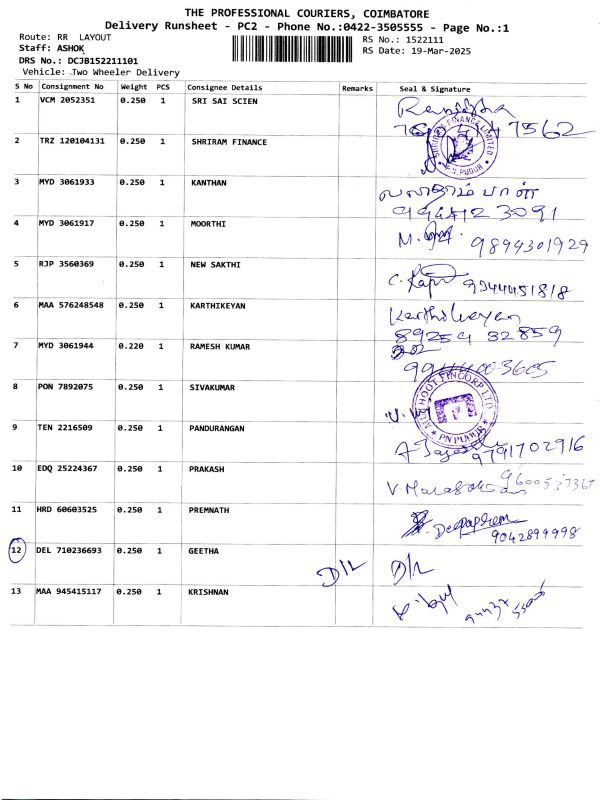 THE PROFESSIONAL COURIERS, COIMBATORE
Delivery Runsheet - PC2 - Phone No.:0422-3505555 - Page No.:1
Route: RR LAYOUT
Staff: ASHOK
DRS No.: DCJB152211101
Vehicle: Two Wheeler Delivery
RS No.: 1522111
RS Date: 19-Mar-2025
S No Consignment No Weight PCS Consignee Details Remarks Seal & Signature
1 VCM 2052351 0.250 1 SRI SAI SCIEN
7562
2 TRZ 120104131 0.250 1 SHRIRAM FINANCE
SHRIRAM FINANCE LIMITED
P.N.PUDUR
3 MYD 3061933 0.250 1 KANTHAN
4 MYD 3061917 0.250 1 MOORTHI
M. 9894301929
5 RJP 3560369 0.250 1 NEW SAKTHI
9344451818
6 MAA 576248548 0.250 1 KARTHIKEYAN
Karthikeyan
89254 32859
7 MYD 3061944 0.220 1 RAMESH KUMAR
8 PON 7892075 0.250 1 SIVAKUMAR
MUTHOOT FINCORP LTD
PN PUDUR
9 TEN 2216509 0.250 1 PANDURANGAN
9791702916
10 EDQ 25224367 0.250 1 PRAKASH
11 HRD 60603525 0.250 1 PREMNATH
9042899998
12 DEL 710236693 0.250 1 GEETHA
D/L D/L
13 MAA 945415117 0.250 1 KRISHNAN